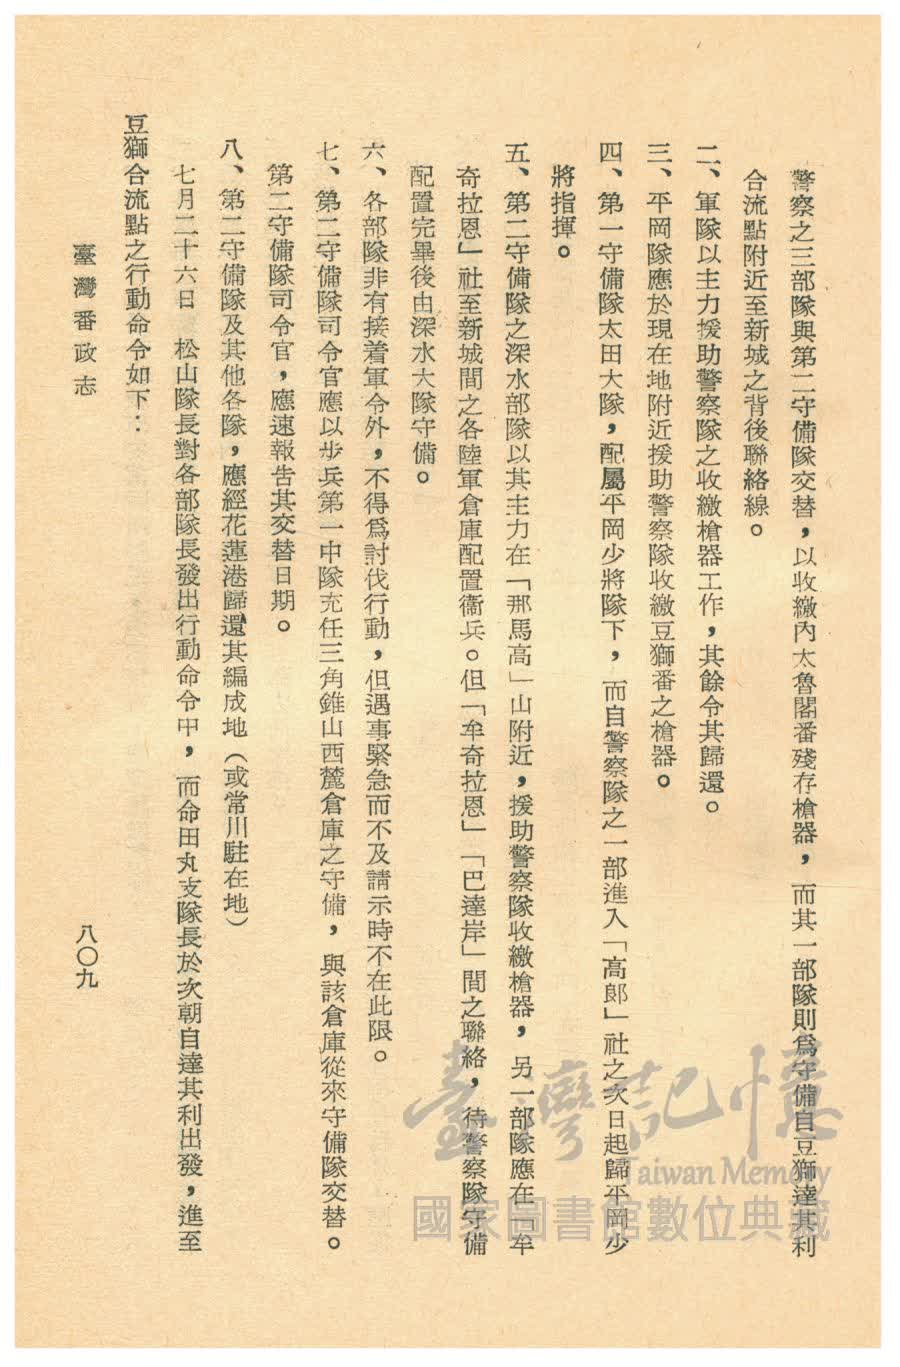 警察之三部隊與第二守備隊交替，以收繳內太魯閣番殘存槍器，而其一部隊則爲守備自豆獅達其利
合流點附近至新城之背後聯絡線。
二、軍隊以主力援助警察隊之收繳槍器工作，其餘令其歸還。
三、平岡隊應於現在地附近援助警察隊收繳豆獅番之槍器。
四、第一守備隊太田大隊，配屬平岡少將隊下，而自警察隊之一部進入「高郞」社之次日起歸平岡少
將指揮。
五、第二守備隊之深水部隊以其主力在「那馬高」山附近，援助警察隊收繳槍器，另一部隊應在「牟
奇拉恩」社至新城間之各陸軍倉庫配置衞兵。但「牟奇拉恩」「巴達岸」間之聯絡，待警察隊守備
配置完畢後由深水大隊守備。
六、各部隊非有接着軍令外，不得爲討伐行動，但遇事緊急而不及請示時不在此限。
七、第二守備隊司令官應以步兵第一中隊充任三角錐山西麓倉庫之守備，與該倉庫從來守備隊交替。
第二守備隊司令官，應速報告其交替日期。
八、第二守備隊及其他各隊，應經花蓮港歸還其編成地（或常川駐在地）
七月二十六日　松山隊長對各部隊長發出行動命令甲，而命田丸支隊長於次朝自達其利出發，進至
豆獅合流點之行動命令如下：
臺灣番政志
八〇九
臺灣記憶
Taiwan Memory
國家圖書館數位典藏